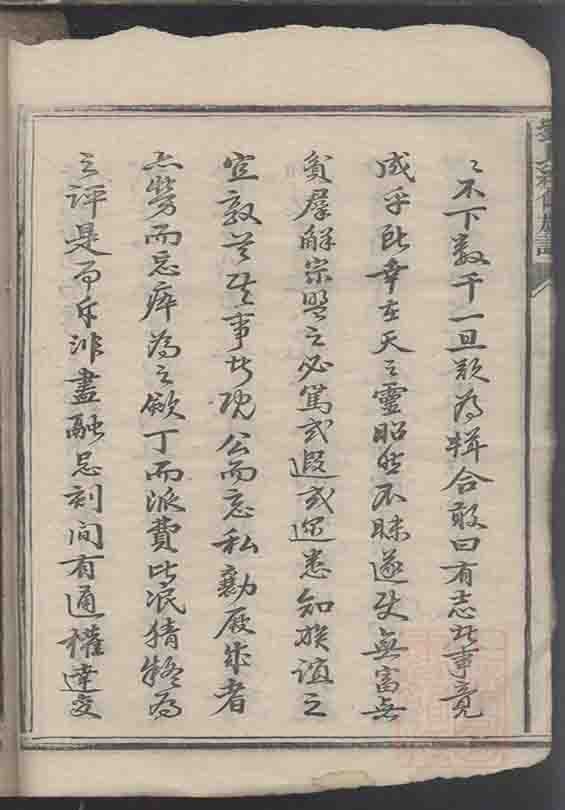 々不下數千一旦欲為輯合敢曰有志此事竟
成乎所幸在天之靈昭然不昧遂使無富無
貧群解宗盟之必篤或遐或邇悉知族誼之
宜敦其事者既公而忘私勷厥成者
亦勞而忘瘁為之斂丁而派費比泯猜疑為
之評是而斥非盡融忌刻間有通權達變